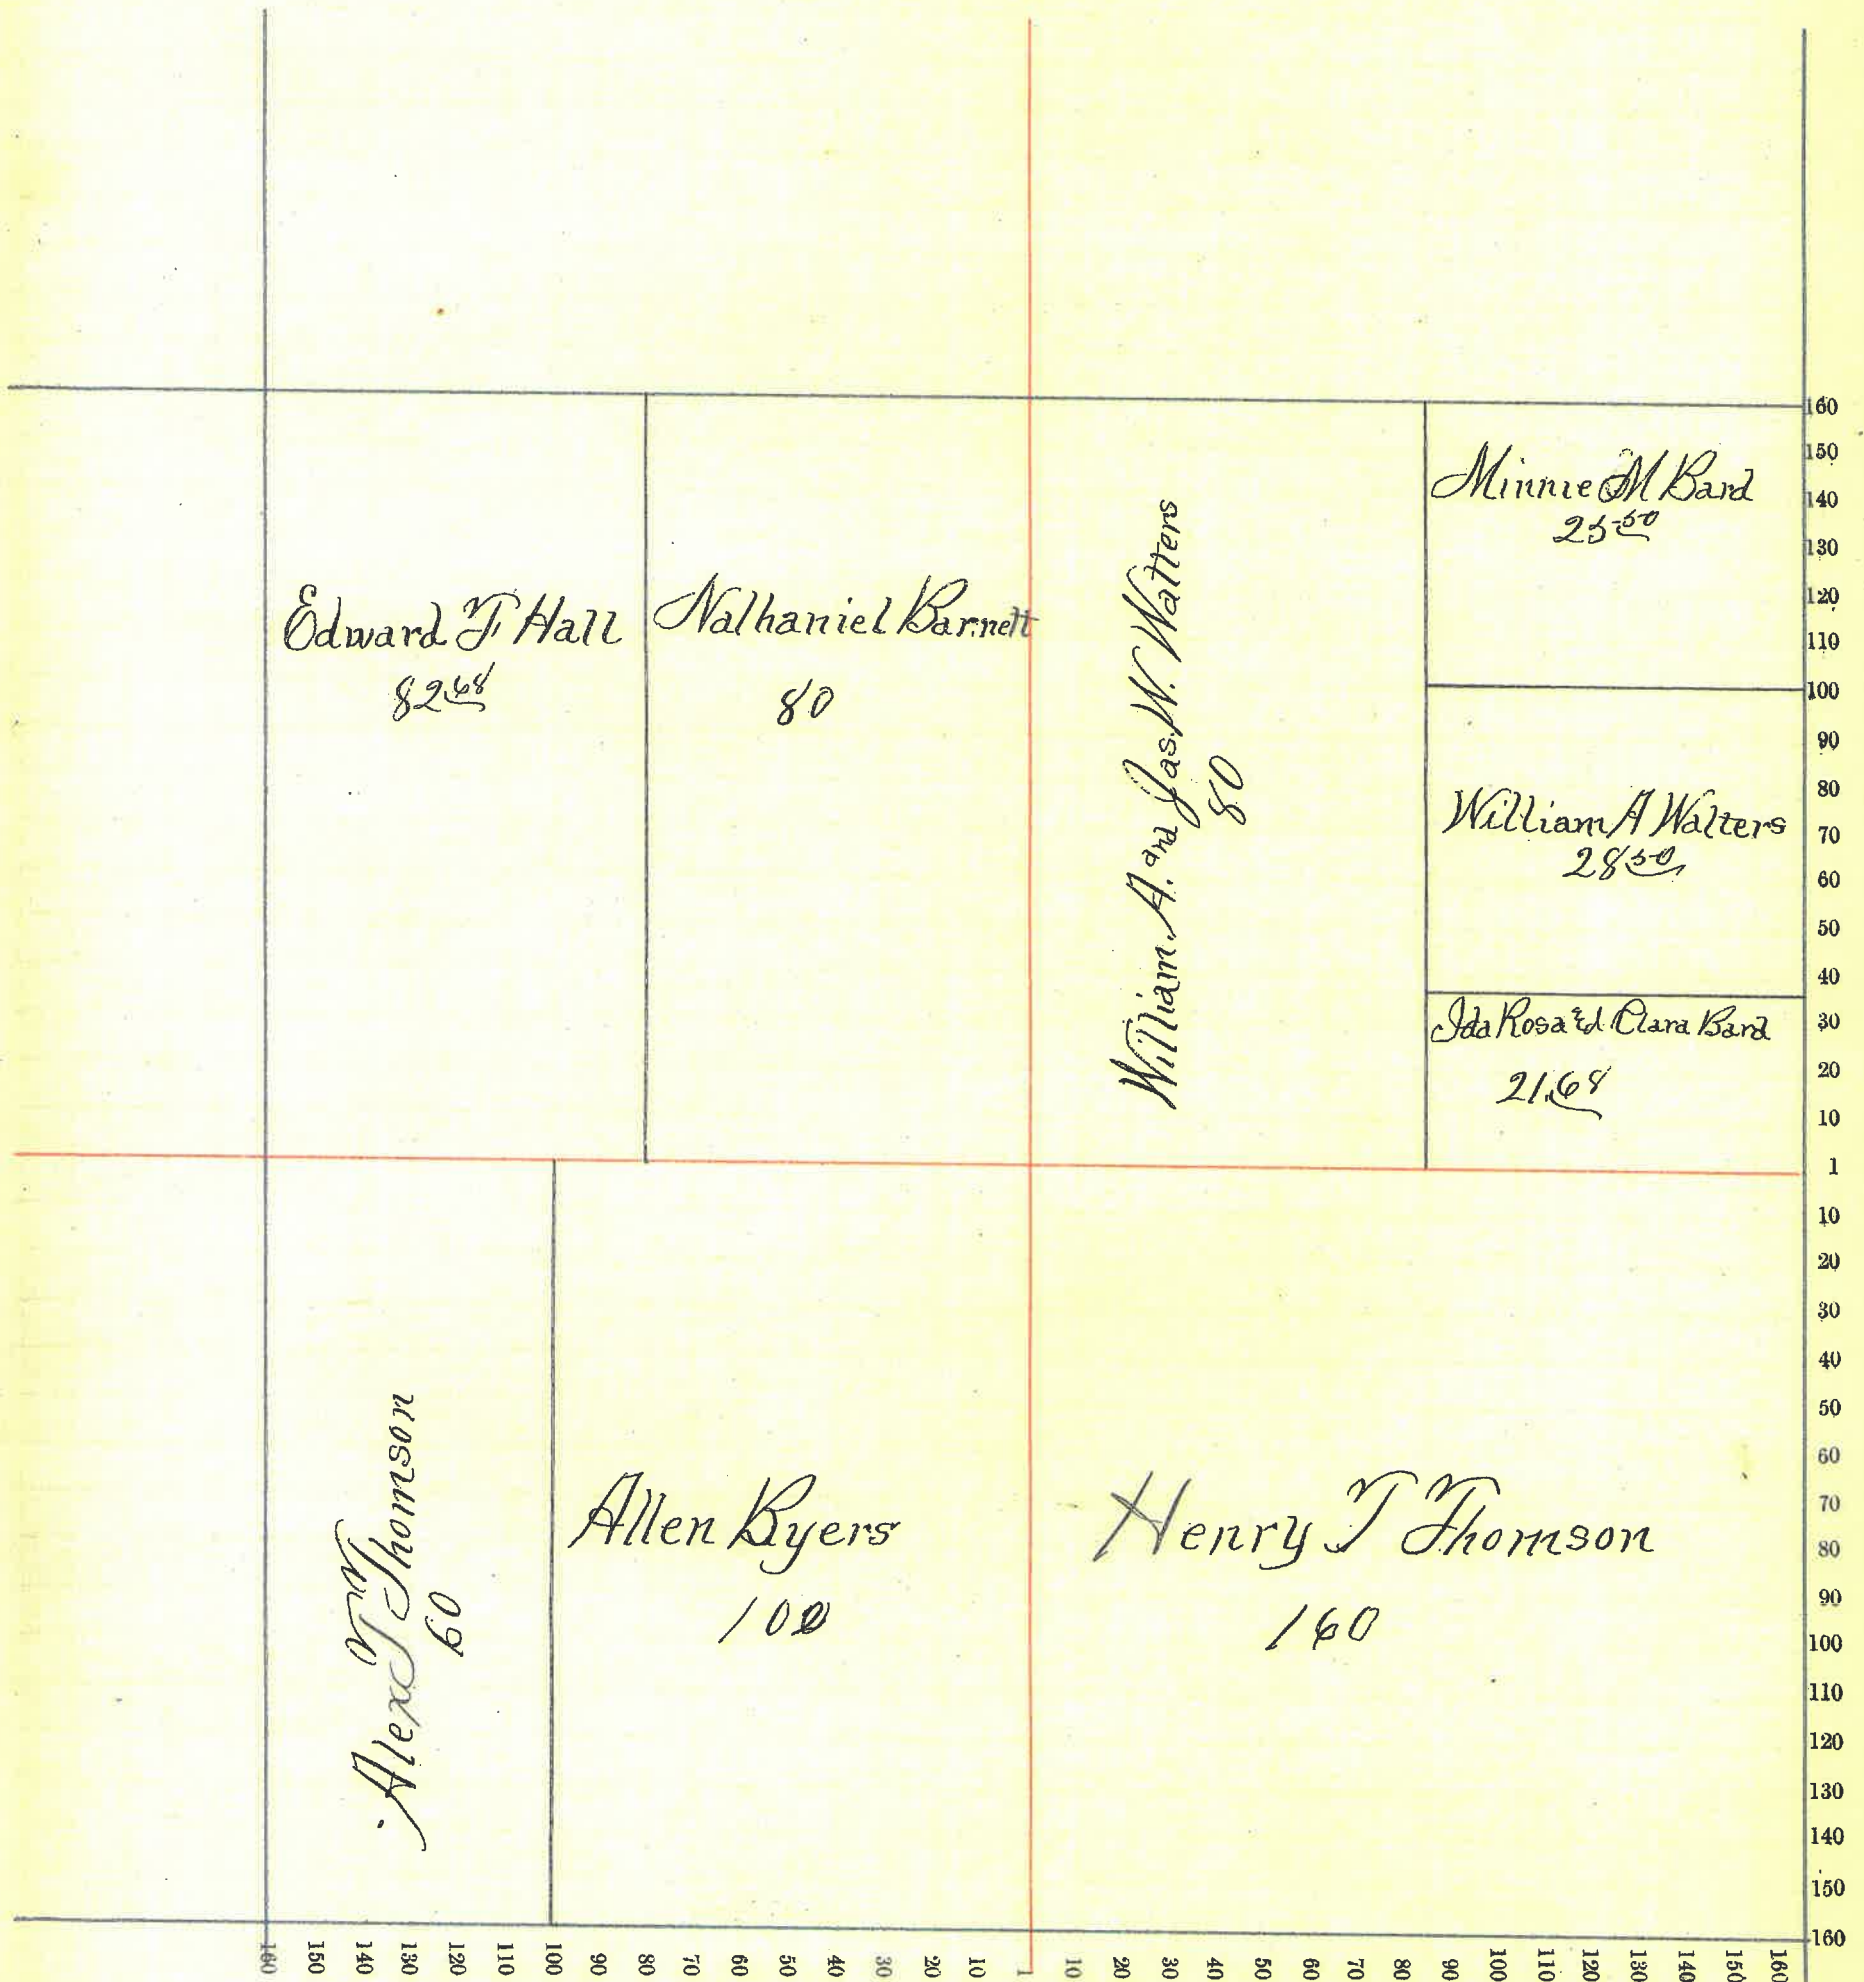 Edward F Hall
82.68
Nathaniel Barnett
80
William. A. and Jas. W. Walters
80
Minnie M Bard
25.50
William A Walters
28.50
Ida Rosa & Clara Bard
21.68
Alex T Thomson
60
Allen Byers
100
Henry T Thomson
160
160
150
140
130
120
110
100
90
80
70
60
50
40
30
20
10
1
10
20
30
40
50
60
70
80
90
100
110
120
130
140
150
160
160 150 140 130 120 110 100 90 80 70 60 50 40 30 20 10 1 10 20 30 40 50 60 70 80 90 100 110 120 130 140 150 160